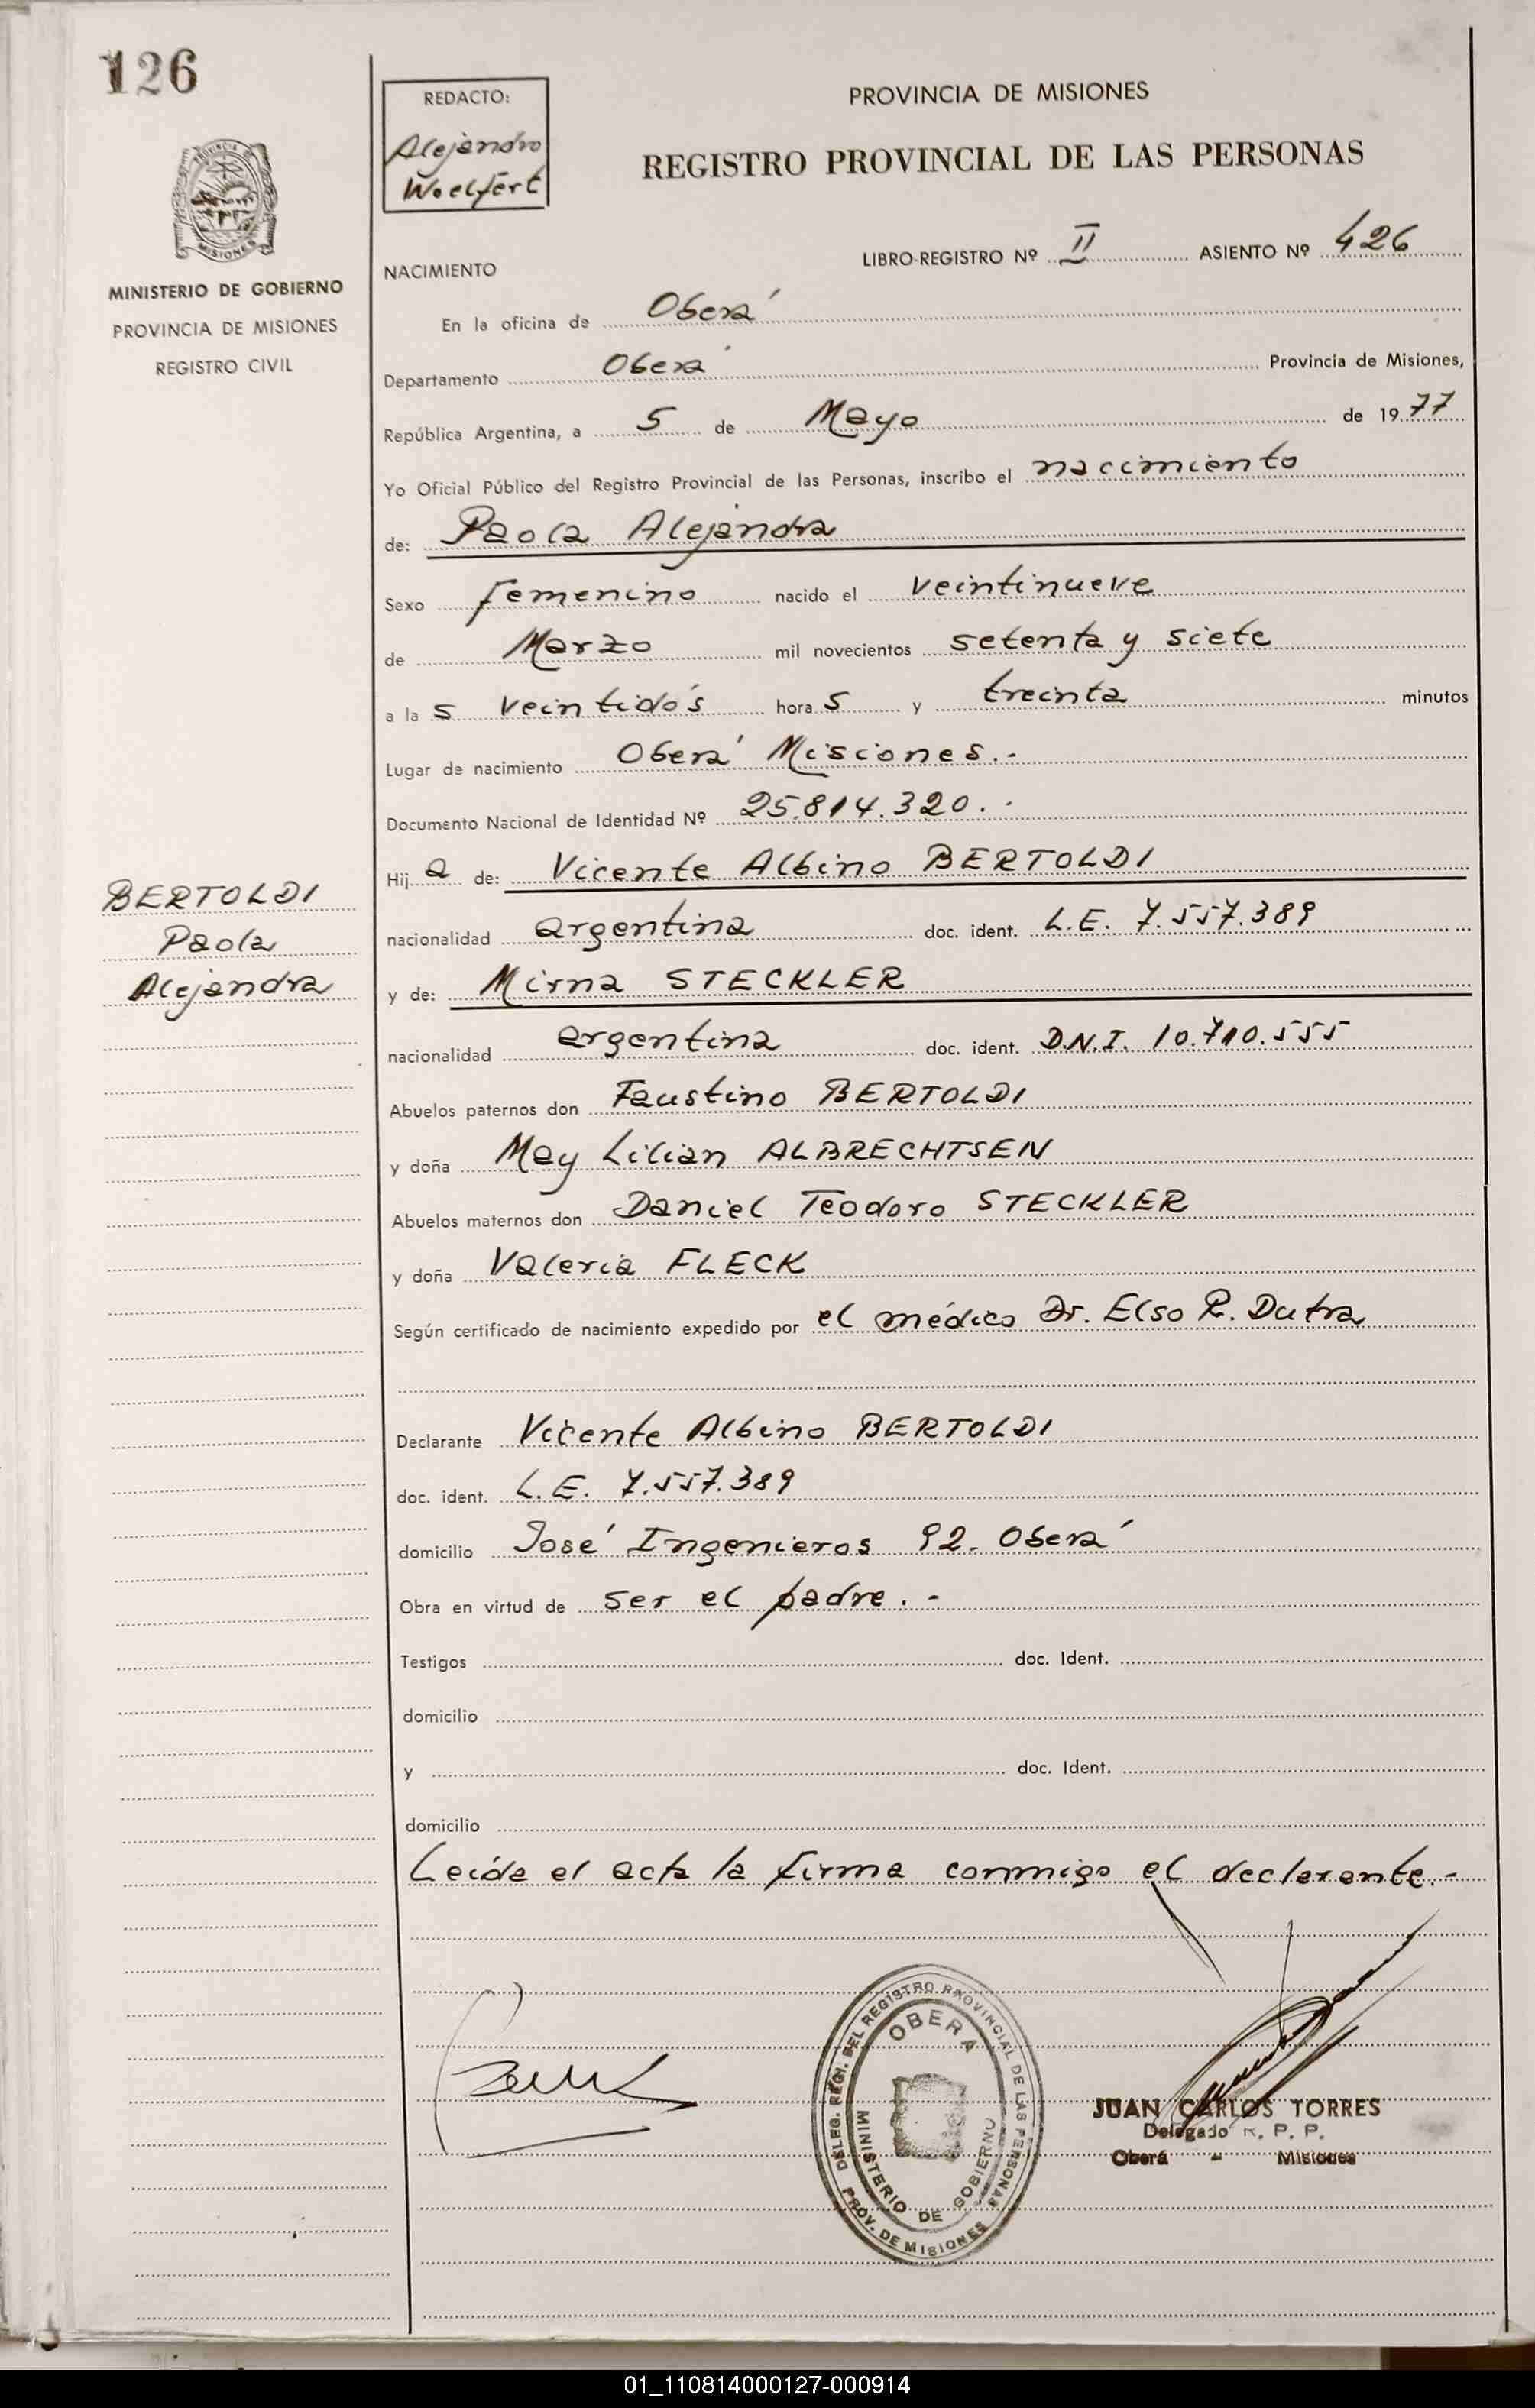 126
REDACTO:
Alejandro
Woelfert
PROVINCIA DE MISIONES
REGISTRO PROVINCIAL DE LAS PERSONAS
PROVINCIA DE
MISIONES
MINISTERIO DE GOBIERNO
PROVINCIA DE MISIONES
REGISTRO CIVIL
NACIMIENTO
LIBRO-REGISTRO Nº II ASIENTO Nº 426
En la oficina de Oberá
Departamento Oberá Provincia de Misiones,
República Argentina, a 5 de Mayo de 1977
Yo Oficial Público del Registro Provincial de las Personas, inscribo el nacimiento
de: Paola Alejandra
Sexo femenino nacido el veintinueve
de Marzo mil novecientos setenta y siete
a la s veintidós hora s y treinta minutos
Lugar de nacimiento Oberá Misiones.-
Documento Nacional de Identidad Nº 25.814.320.-
Hij a de: Vicente Albino BERTOLDI
nacionalidad argentina doc. ident. L.E. 7.557.389
y de: Mirna STECKLER
nacionalidad argentina doc. ident. D.N.I. 10.710.555
Abuelos paternos don Faustino BERTOLDI
y doña May Lilian ALBRECHTSEN
Abuelos maternos don Daniel Teodoro STECKLER
y doña Valeria FLECK
Según certificado de nacimiento expedido por el médico Dr. Elso R. Dutra
Declarante Vicente Albino BERTOLDI
doc. ident. L.E. 7.557.389
domicilio José Ingenieros 92. Oberá
Obra en virtud de ser el padre.-
Testigos doc. Ident.
domicilio
y doc. Ident.
domicilio
Leída el acta la firma conmigo el declarante.-
BERTOLDI
Paola
Alejandra
DELEG. REGI. DEL REGISTRO PROVINCIAL DE LAS PERSONAS
OBERA
MINISTERIO DE GOBIERNO
PROV. DE MISIONES
JUAN CARLOS TORRES
Delegado R. P. P.
Oberá - Misiones
01_110814000127-000914